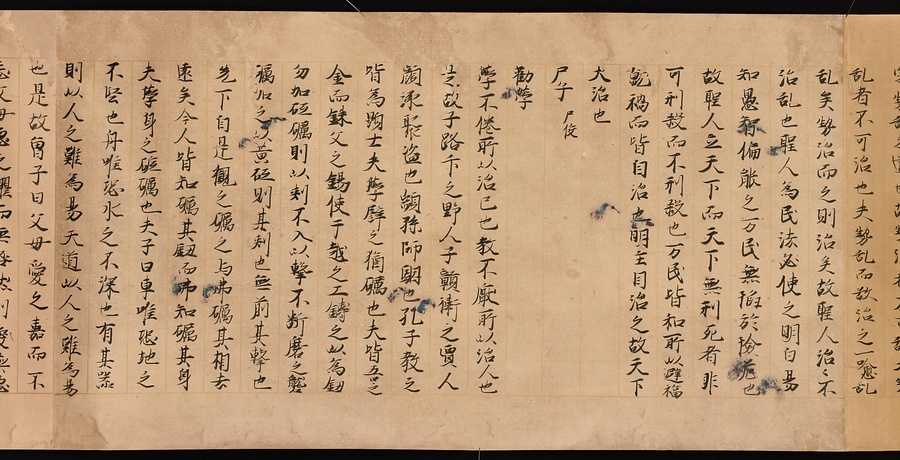 乱者不可治也夫勢乱而欲治之愈乱
乱矣勢治而之則治矣故聖人治〻不
治乱也聖人為民法必使之明白易
知愚智偏能之万民無陷於險危也
故聖人立天下而天下無刑死者非
可刑殺而不刑殺也万民皆知所以避福
就禍而皆自治也明主因治之故天下
大治也
尸子 尸佼
勸學
學不倦所以治己也教不厭所以治人也
是故子路卞之野人子贛衛之賈人
顏涿聚盜也顓孫師駔也孔子教之
皆為顯士夫學譬之猶礪也夫昆吾之
金而銖父之錫使干越之工鑄之以為劔
勿加砥礪則以刺不入以擊不斷磨之礱
礪加之以黄砥則其刺也無前其擊也
無下自是觀之礪之与弗礪其相去
遠矣今人皆知礪其劔而弗知礪其身
夫學身之砥礪也夫子曰車唯恐地之
不堅也舟唯恐水之不深也有其器
則以人之難為易夫道以人之難為易
也是故曾子曰父母愛之嘉而不
忘父母惡之懼而無咎然則愛